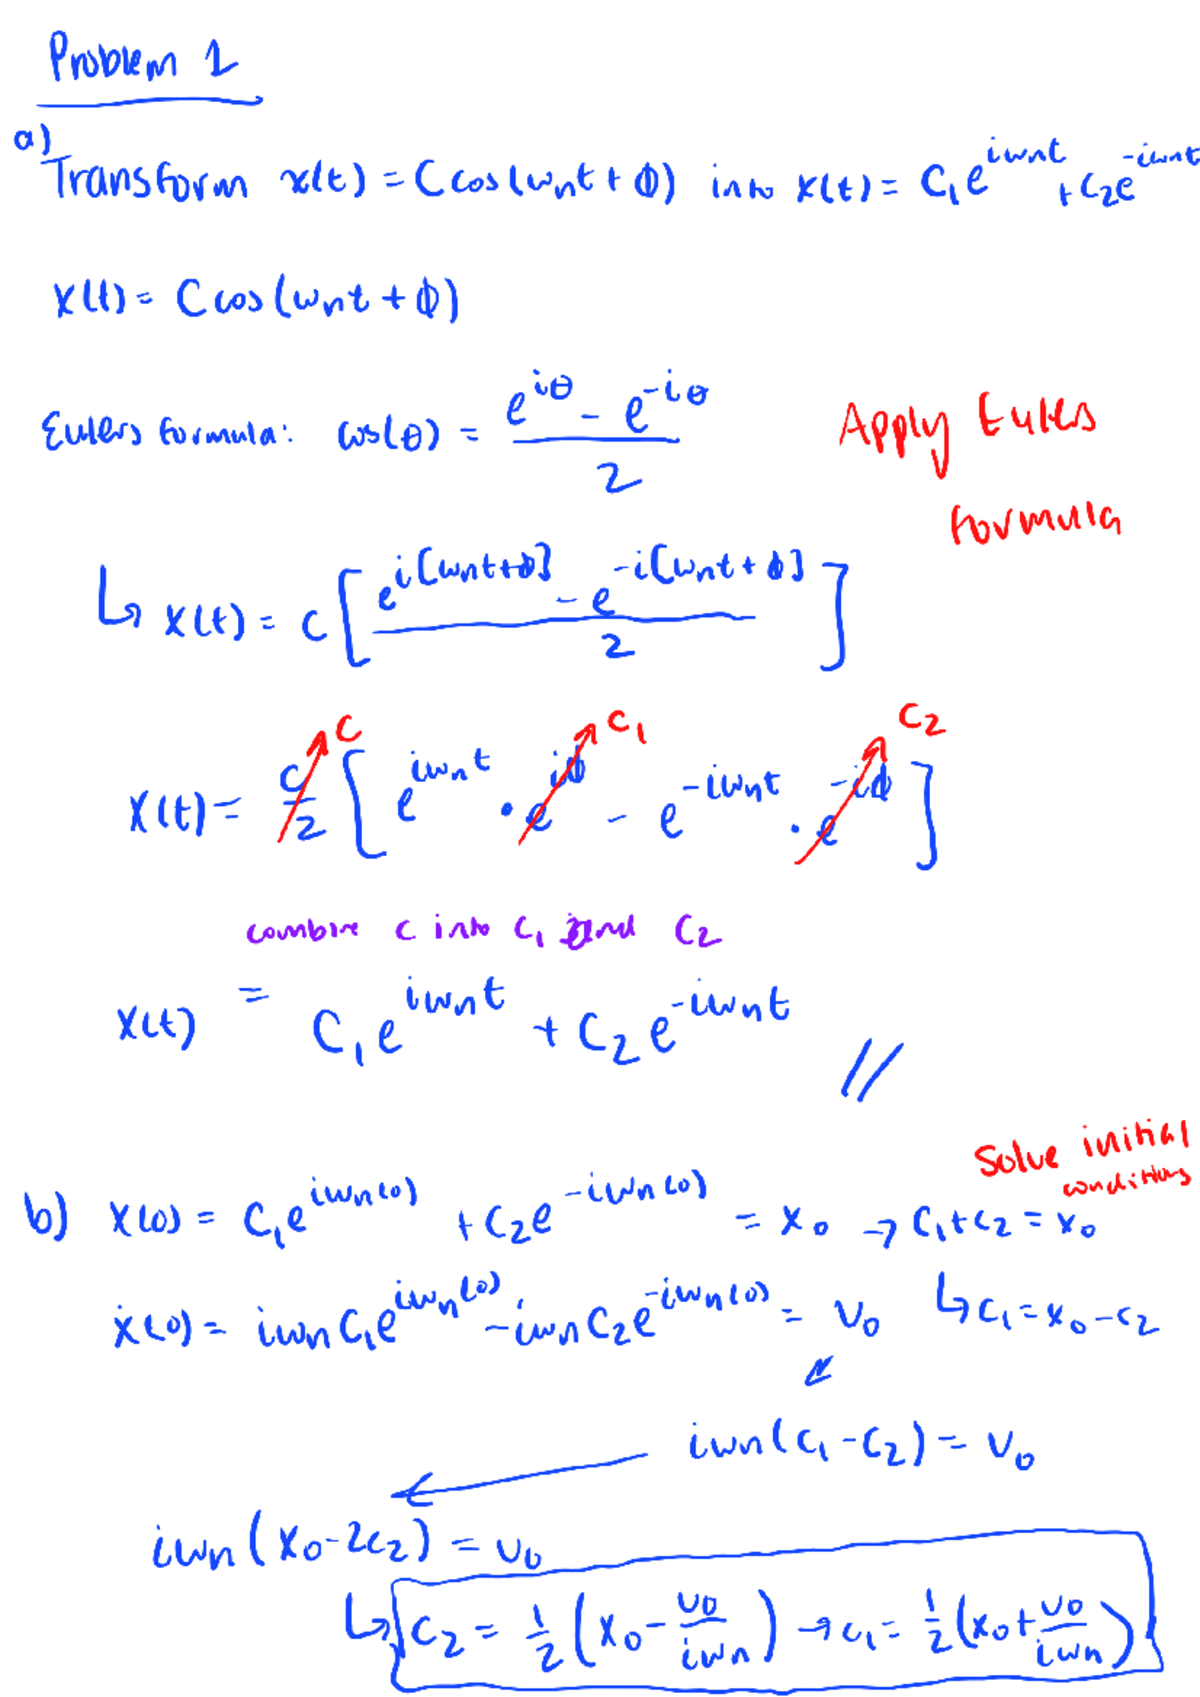 Problem 1
a)
Transform x(t) = C cos(ωnt + φ) into x(t) = C₁e^{iωnt} + C₂e^{-iωnt}
x(t) = C cos(ωnt + φ)
Eulers formula: cos(θ) = (e^{iθ} - e^{-iθ})/2
Apply Eulers
formula
↳ x(t) = C [ (e^{i[ωnt+φ]} - e^{-i[ωnt+φ]})/2 ]
C C₁ C₂
x(t) = C/2 [ e^{iωnt} · e^{iφ} - e^{-iωnt} · e^{-iφ} ]
combine C into C₁ and C₂
x(t) = C₁e^{iωnt} + C₂e^{-iωnt} //
Solve initial
conditions
b) x(0) = C₁e^{iωn(0)} + C₂e^{-iωn(0)} = x₀ → C₁+C₂ = x₀
ẋ(0) = iωnC₁e^{iωn(0)} - iωnC₂e^{-iωn(0)} = v₀ ↳ C₁ = x₀-C₂
iωn(C₁-C₂) = v₀
iωn(x₀-2C₂) = v₀
↳ C₂ = 1/2 (x₀ - v₀/iωn) → C₁ = 1/2 (x₀ + v₀/iωn)